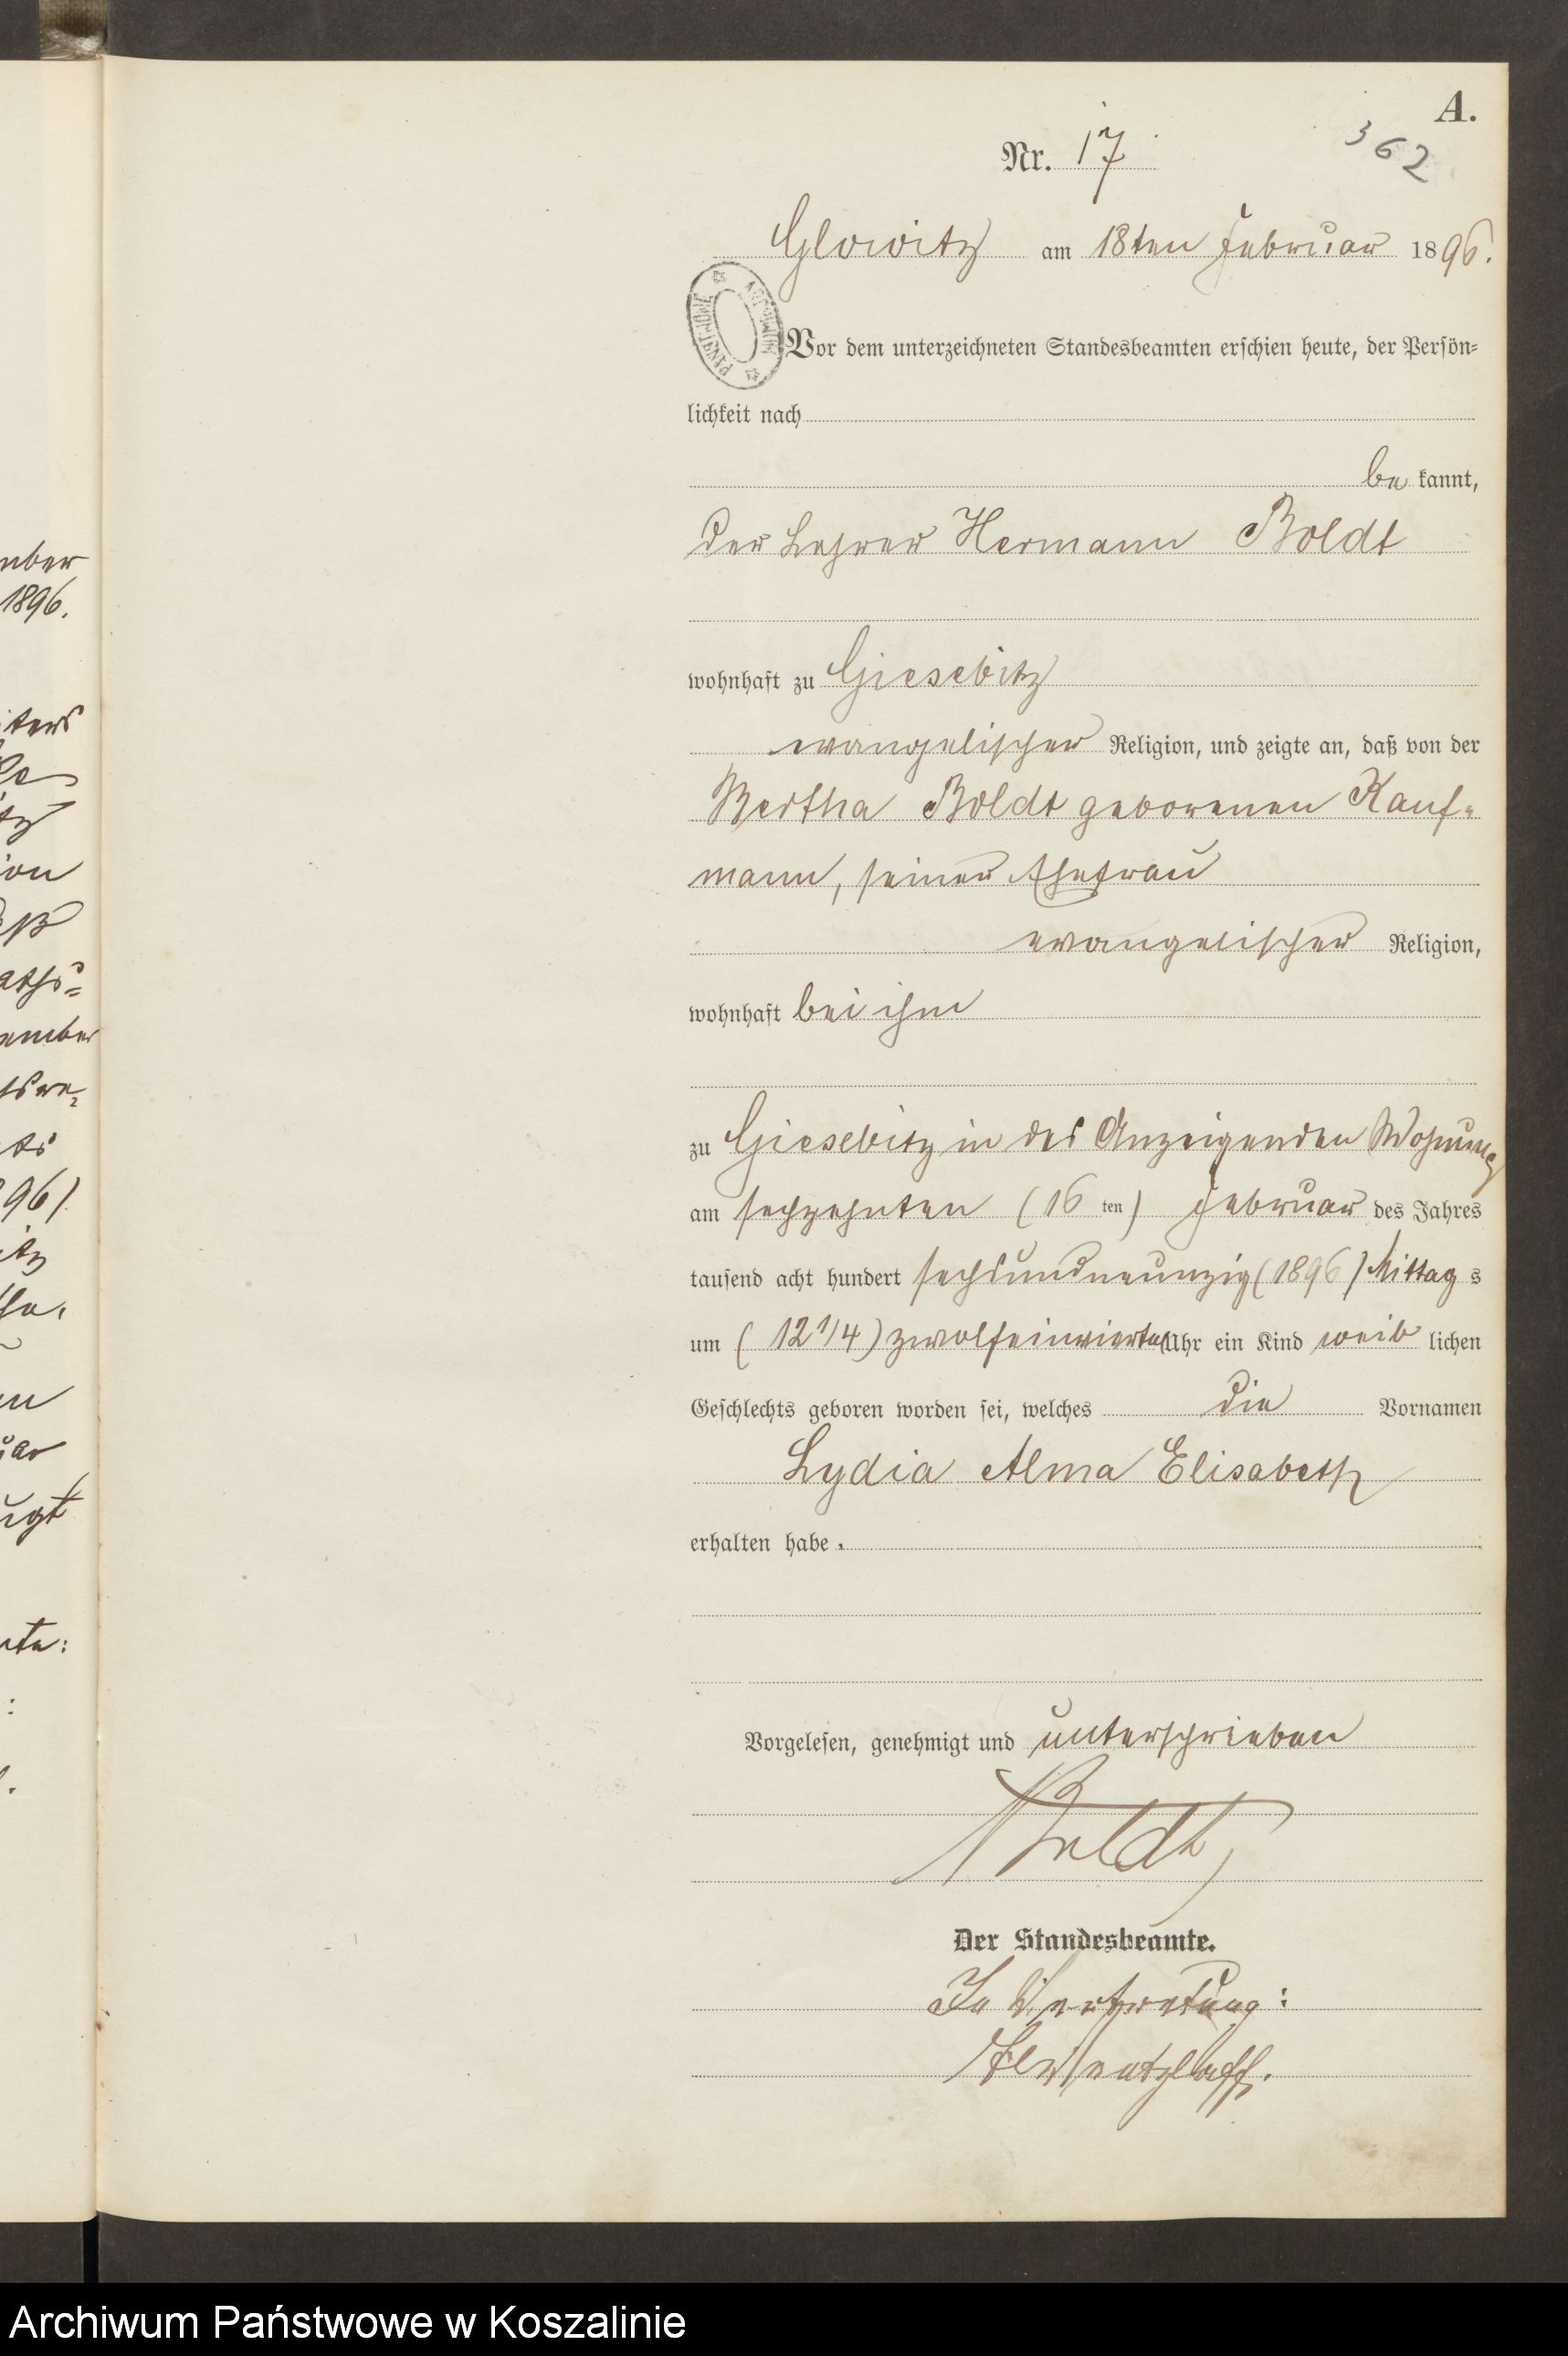 A.
362
Nr. 17
Glowitz am 18ten Februar 1896.
Vor dem unterzeichneten Standesbeamten erschien heute, der Persön=
lichkeit nach
be kannt,
der Lehrer Hermann Boldt
wohnhaft zu Giesebitz
evangelischer Religion, und zeigte an, daß von der
Bertha Boldt geborenen Kauf=
mann, seiner Ehefrau
evangelischer Religion,
wohnhaft bei ihm
zu Giesebitz in des Anzeigenden Wohnung
am sechzehnten (16 ten) Februar des Jahres
tausend acht hundert sechsundneunzig (1896) Mittag s
um (12 1/4) zwölfeinviertel Uhr ein Kind weib lichen
Geschlechts geboren worden sei, welches die Vornamen
Lydia Alma Elisabeth
erhalten habe.
Vorgelesen, genehmigt und unterschrieben
Boldt
Der Standesbeamte.
In Vertretung:
mber
1896.
ion
ember
96)
Archiwum Państwowe w Koszalinie